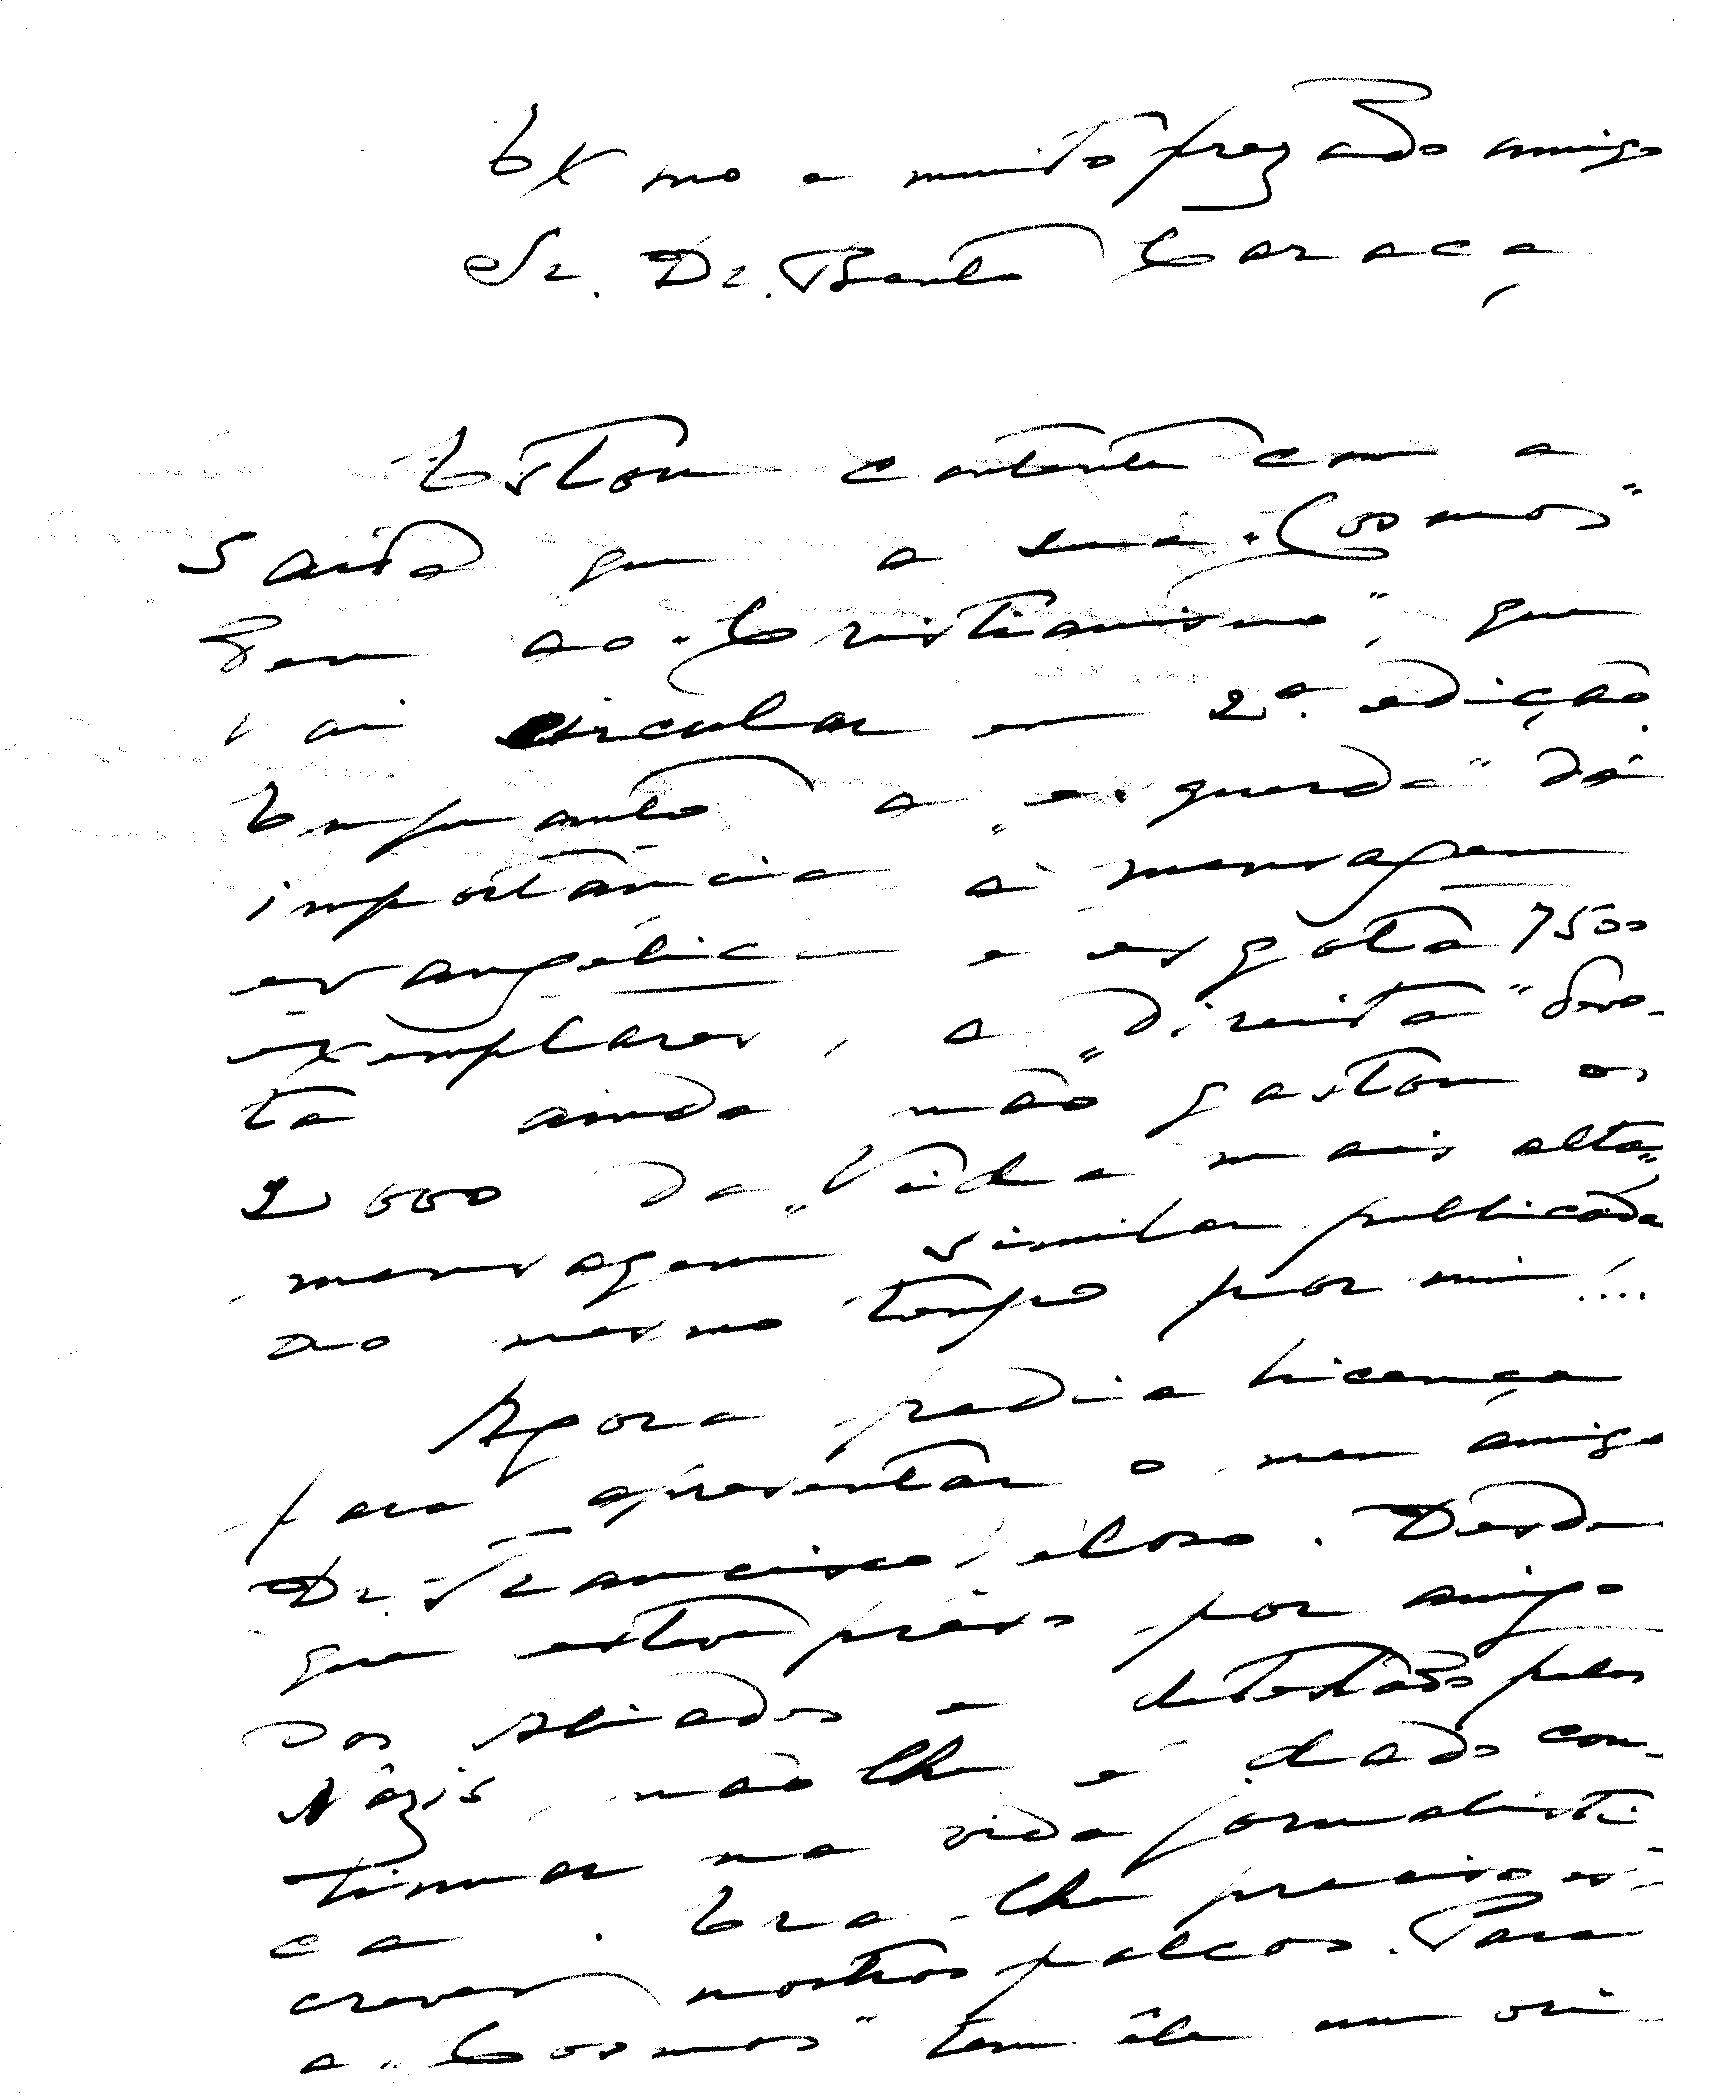 Exmo e muito prezado amigo
Sr. Dr. Bento Caraça
Estou contente com a
saída que a sua "Cosmos"
deu ao "Cristianismo", que
vai circular em 2ª edição.
Enquanto a "esquerda" dá
importância à mensagem
evangélica e esgota 7500
exemplares, a "direita" devo-
ta ainda não gastou os
2000 da "Vida mais alta",
mensagem similar publicada
ao mesmo tempo por mim!...
Agora pedia licença
para apresentar o meu amigo
Dr. Francisco Veloso. Desde
que esteve preso por amigo
dos Aliados e detestado pelos
Nazis, não lhe é dado con-
tinuar na vida jornalísti-
ca. Era-lhe preciso es-
crever noutros palcos. Para
a "Cosmos" tem êle um ori-